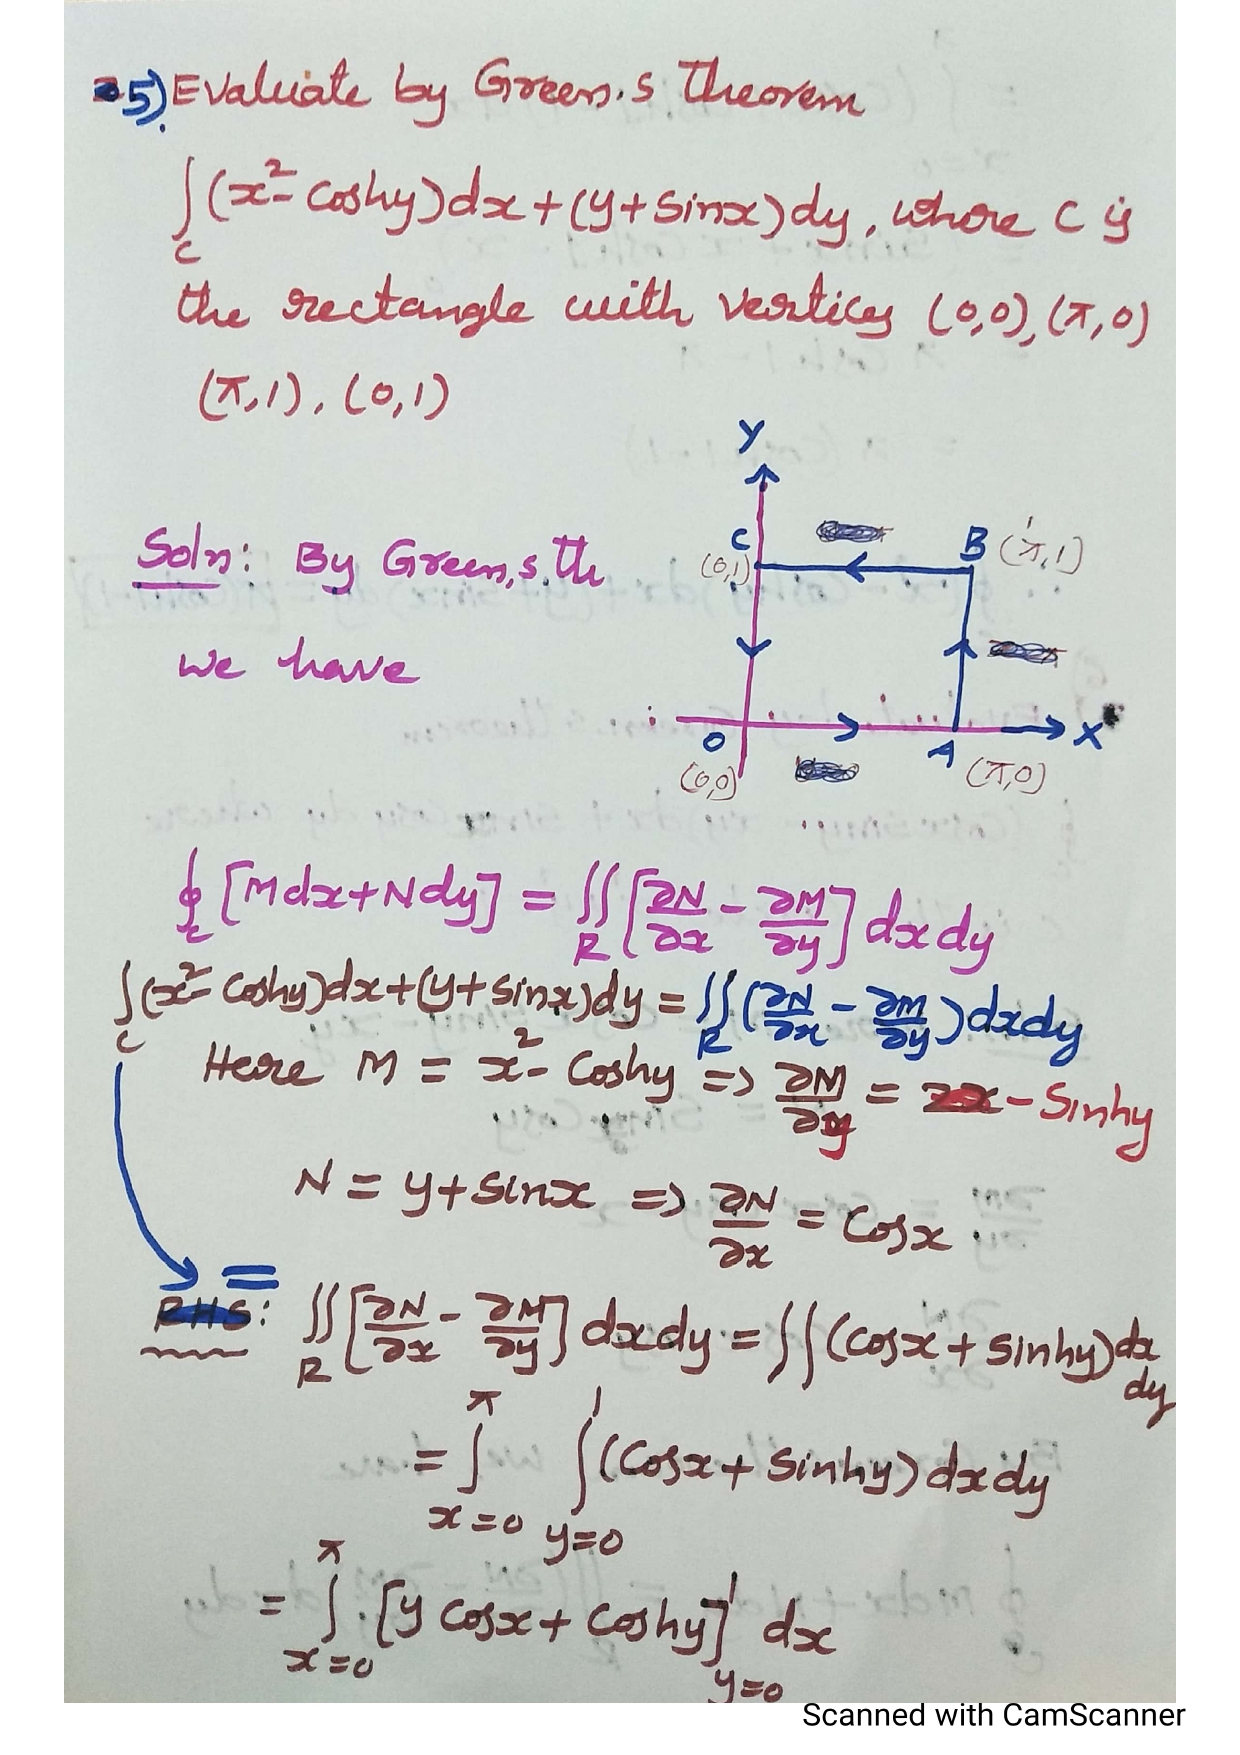 5). Evaluate by Green's Theorem
∫_C (x² - coshy)dx + (y + sinx)dy, where C is
the rectangle with vertices (0,0), (π,0)
(π,1), (0,1)
Y
C
(0,1)
B (π,1)
Soln: By Green's th
we have
O
(0,0)
A
(π,0)
X
∮_C [Mdx + Ndy] = ∬_R [∂N/∂x - ∂M/∂y] dxdy
∫_C (x² - coshy)dx + (y + sinx)dy = ∬_R (∂N/∂x - ∂M/∂y) dxdy
Here M = x² - coshy => ∂M/∂y = - Sinhy
N = y + sinx => ∂N/∂x = cosx
=
RHS: ∬_R [∂N/∂x - ∂M/∂y] dxdy = ∬ (cosx + sinhy) dx dy
= ∫_{x=0}^{π} ∫_{y=0}^{1} (cosx + sinhy) dxdy
= ∫_{x=0}^{π} [y cosx + coshy]_{y=0}^{1} dx
Scanned with CamScanner